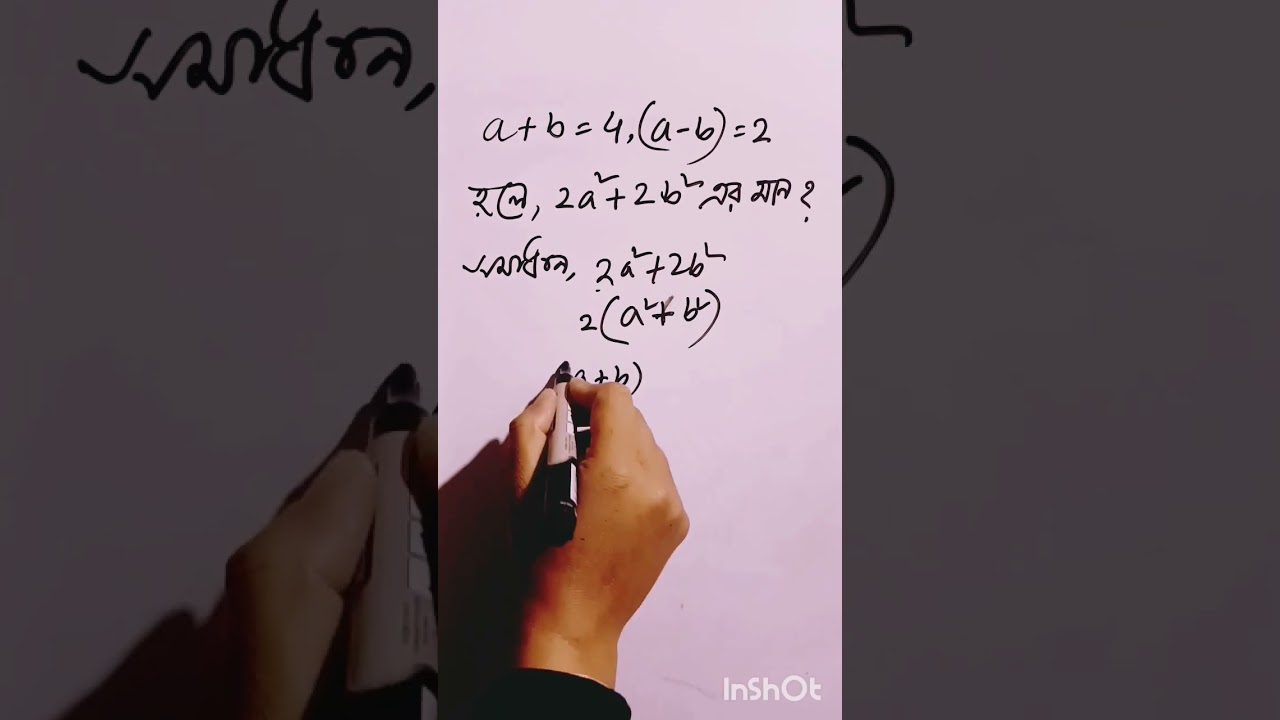 a+b=4, (a-b)=2
হলে, 2a²+2b² এর মান ?
সমাধান, 2a²+2b²
2(a²+b²)
a+b)
InShOt